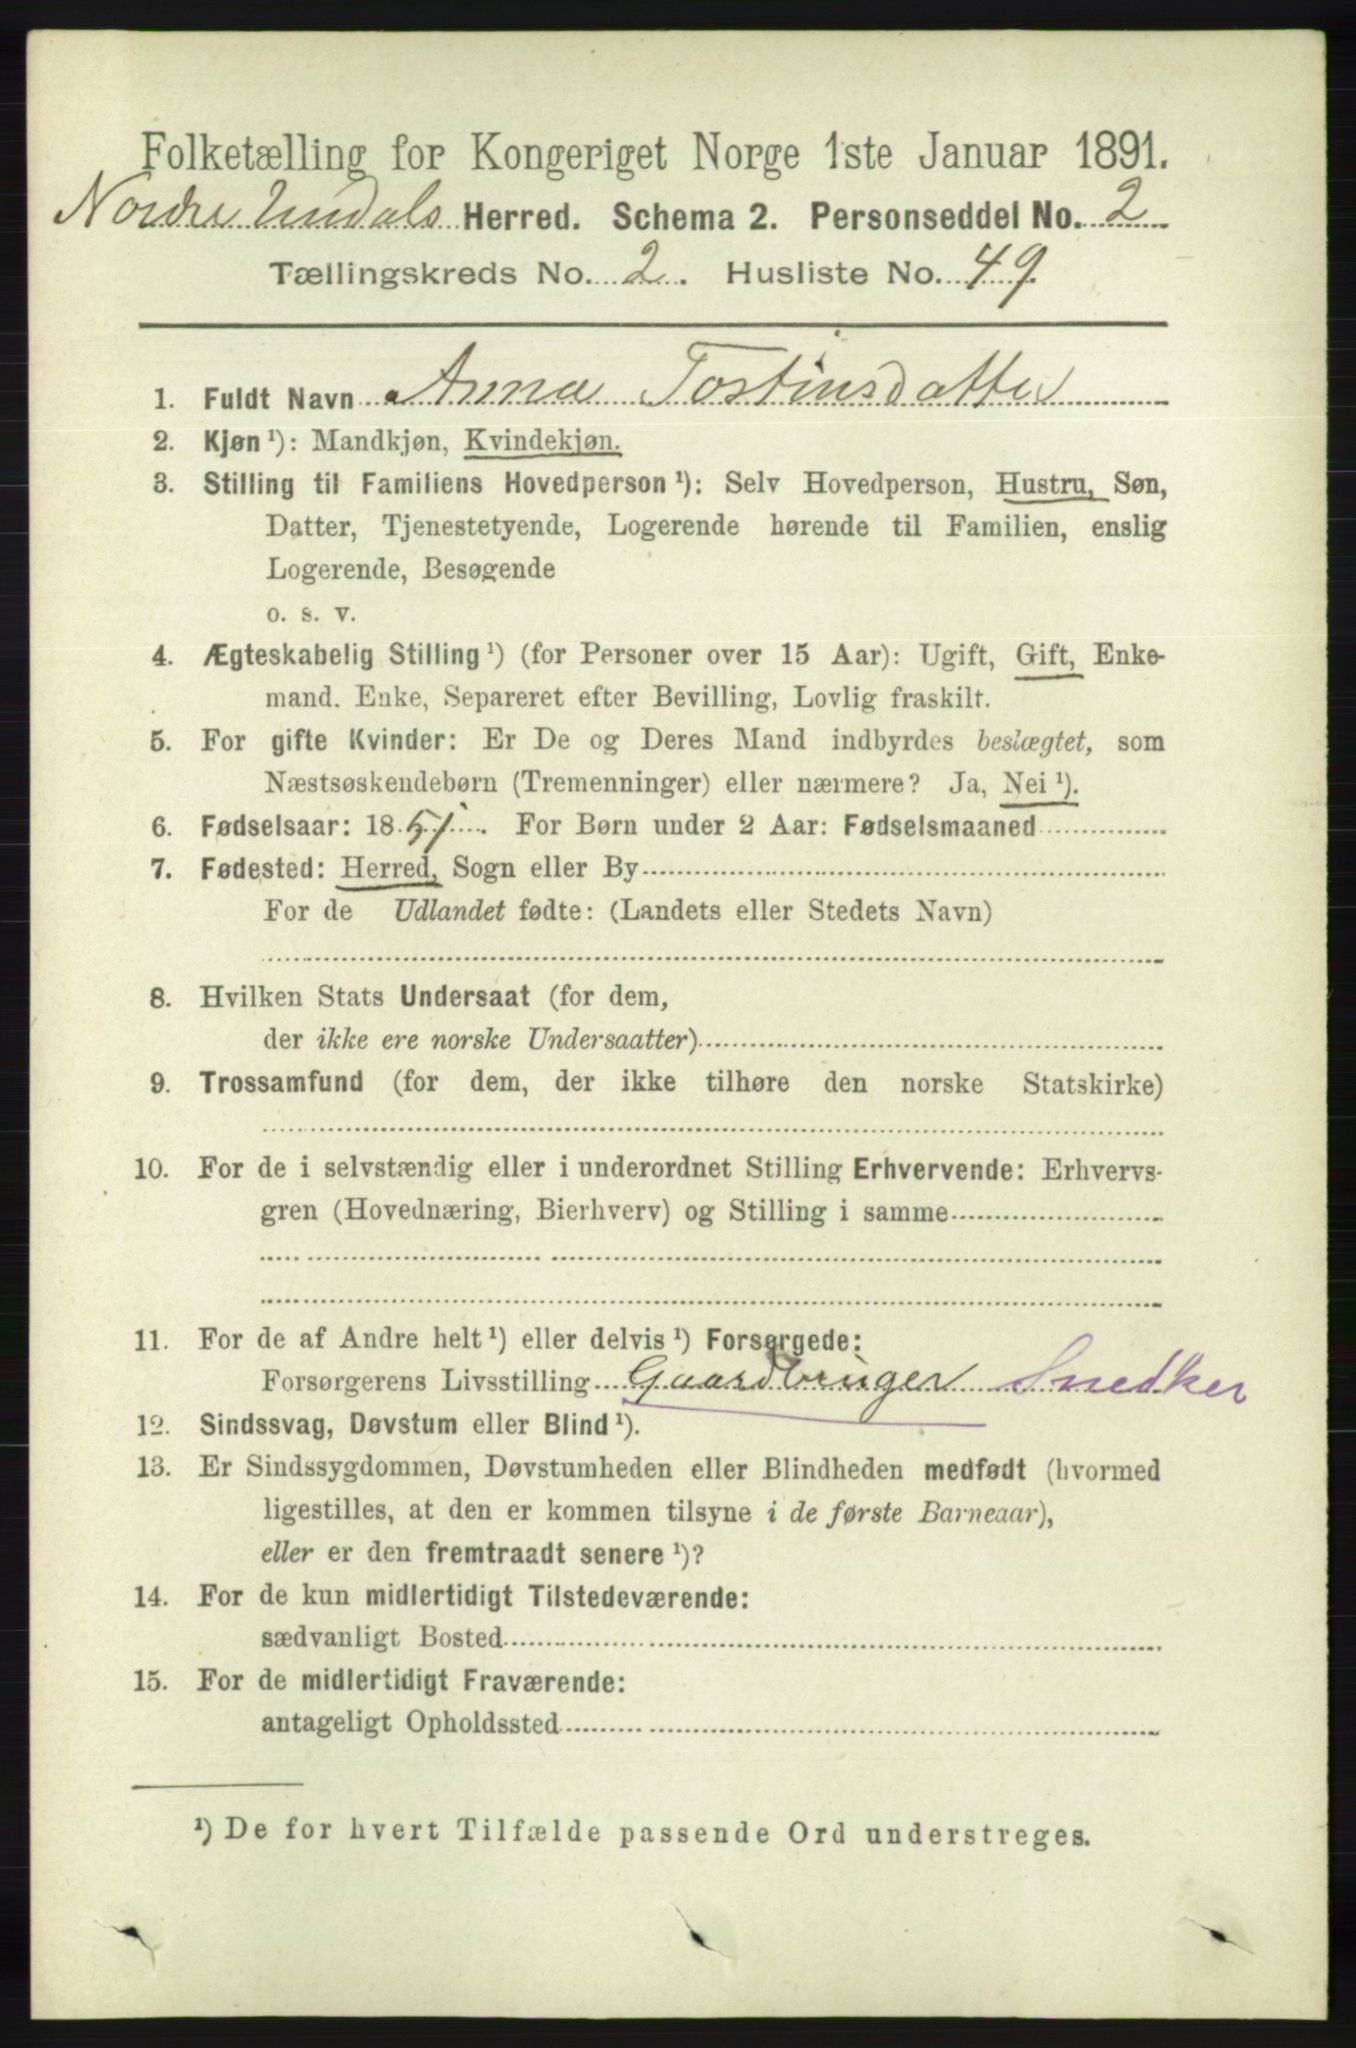 Folketælling for Kongeriget Norge 1ste Januar 1891.
Nordre Undals Herred. Schema 2. Personseddel No. 2
Tællingskreds No. 2. Husliste No. 49
1. Fuldt Navn Anna Tostinsdatter
2. Kjøn ¹): Mandkjøn, Kvindekjøn.
3. Stilling til Familiens Hovedperson ¹): Selv Hovedperson, Hustru, Søn,
Datter, Tjenestetyende, Logerende hørende til Familien, enslig
Logerende, Besøgende
o. s. v.
4. Ægteskabelig Stilling ¹) (for Personer over 15 Aar): Ugift, Gift, Enke-
mand. Enke, Separeret efter Bevilling, Lovlig fraskilt.
5. For gifte Kvinder: Er De og Deres Mand indbyrdes beslægtet, som
Næstsøskendebørn (Tremenninger) eller nærmere? Ja, Nei ¹).
6. Fødselsaar: 1851. For Børn under 2 Aar: Fødselsmaaned
7. Fødested: Herred, Sogn eller By
For de Udlandet fødte: (Landets eller Stedets Navn)
8. Hvilken Stats Undersaat (for dem,
der ikke ere norske Undersaatter)
9. Trossamfund (for dem, der ikke tilhøre den norske Statskirke)
10. For de i selvstændig eller i underordnet Stilling Erhvervende: Erhvervs-
gren (Hovednæring, Bierhverv) og Stilling i samme
11. For de af Andre helt ¹) eller delvis ¹) Forsørgede:
Forsørgerens Livsstilling Gaardbruger Snedker
12. Sindssvag, Døvstum eller Blind ¹).
13. Er Sindssygdommen, Døvstumheden eller Blindheden medfødt (hvormed
ligestilles, at den er kommen tilsyne i de første Barneaar),
eller er den fremtraadt senere ¹)?
14. For de kun midlertidigt Tilstedeværende:
sædvanligt Bosted
15. For de midlertidigt Fraværende:
antageligt Opholdssted
¹) De for hvert Tilfælde passende Ord understreges.